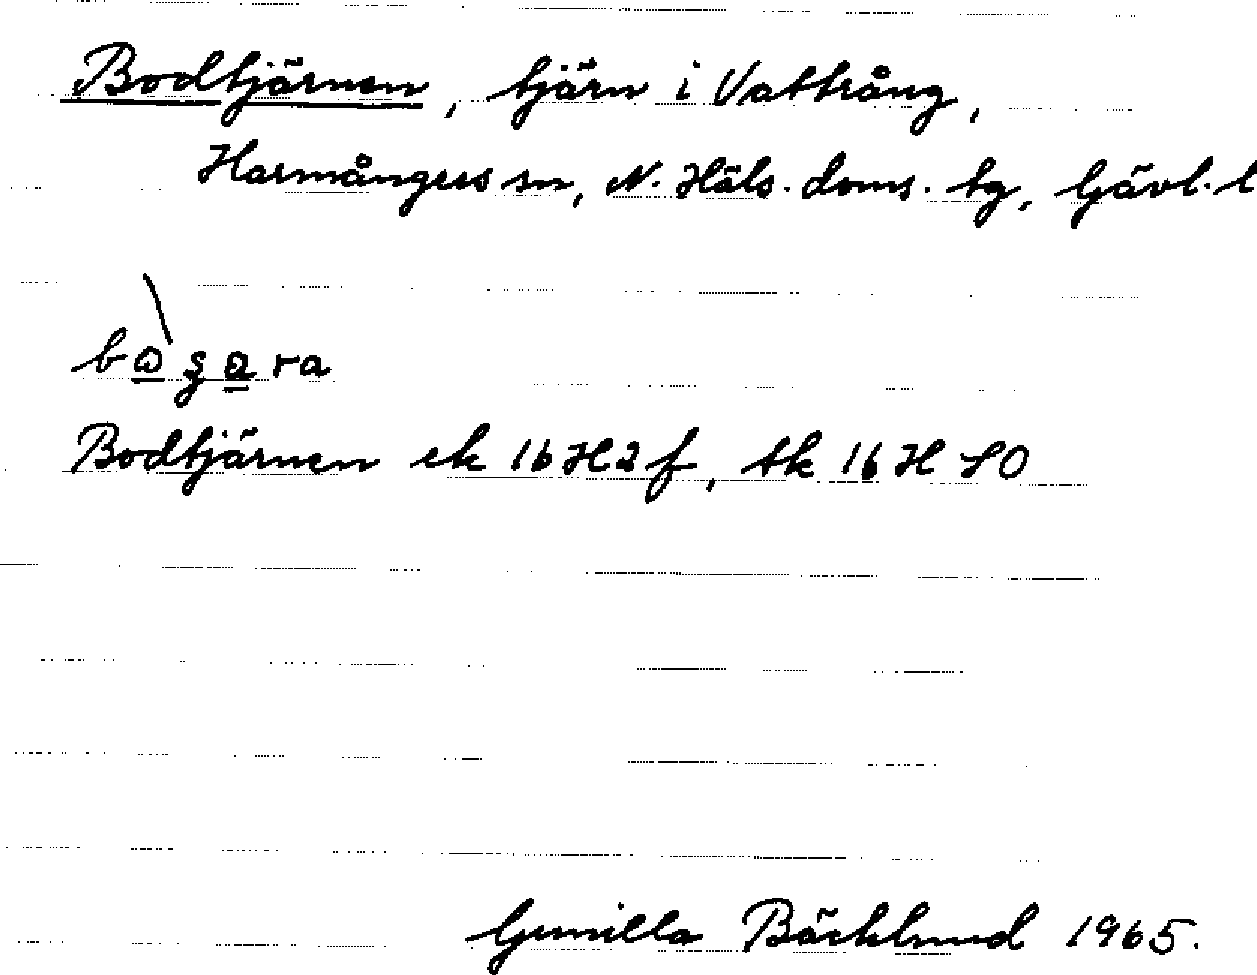 Bodtjärnen, tjärn i Vattrång,
Harmångers sn, N. Häls. doms. tg, Gävl. l
Bodtjärnen ek 16 H 2 f, tk 16 H SO
Gunilla Bäcklund 1965.